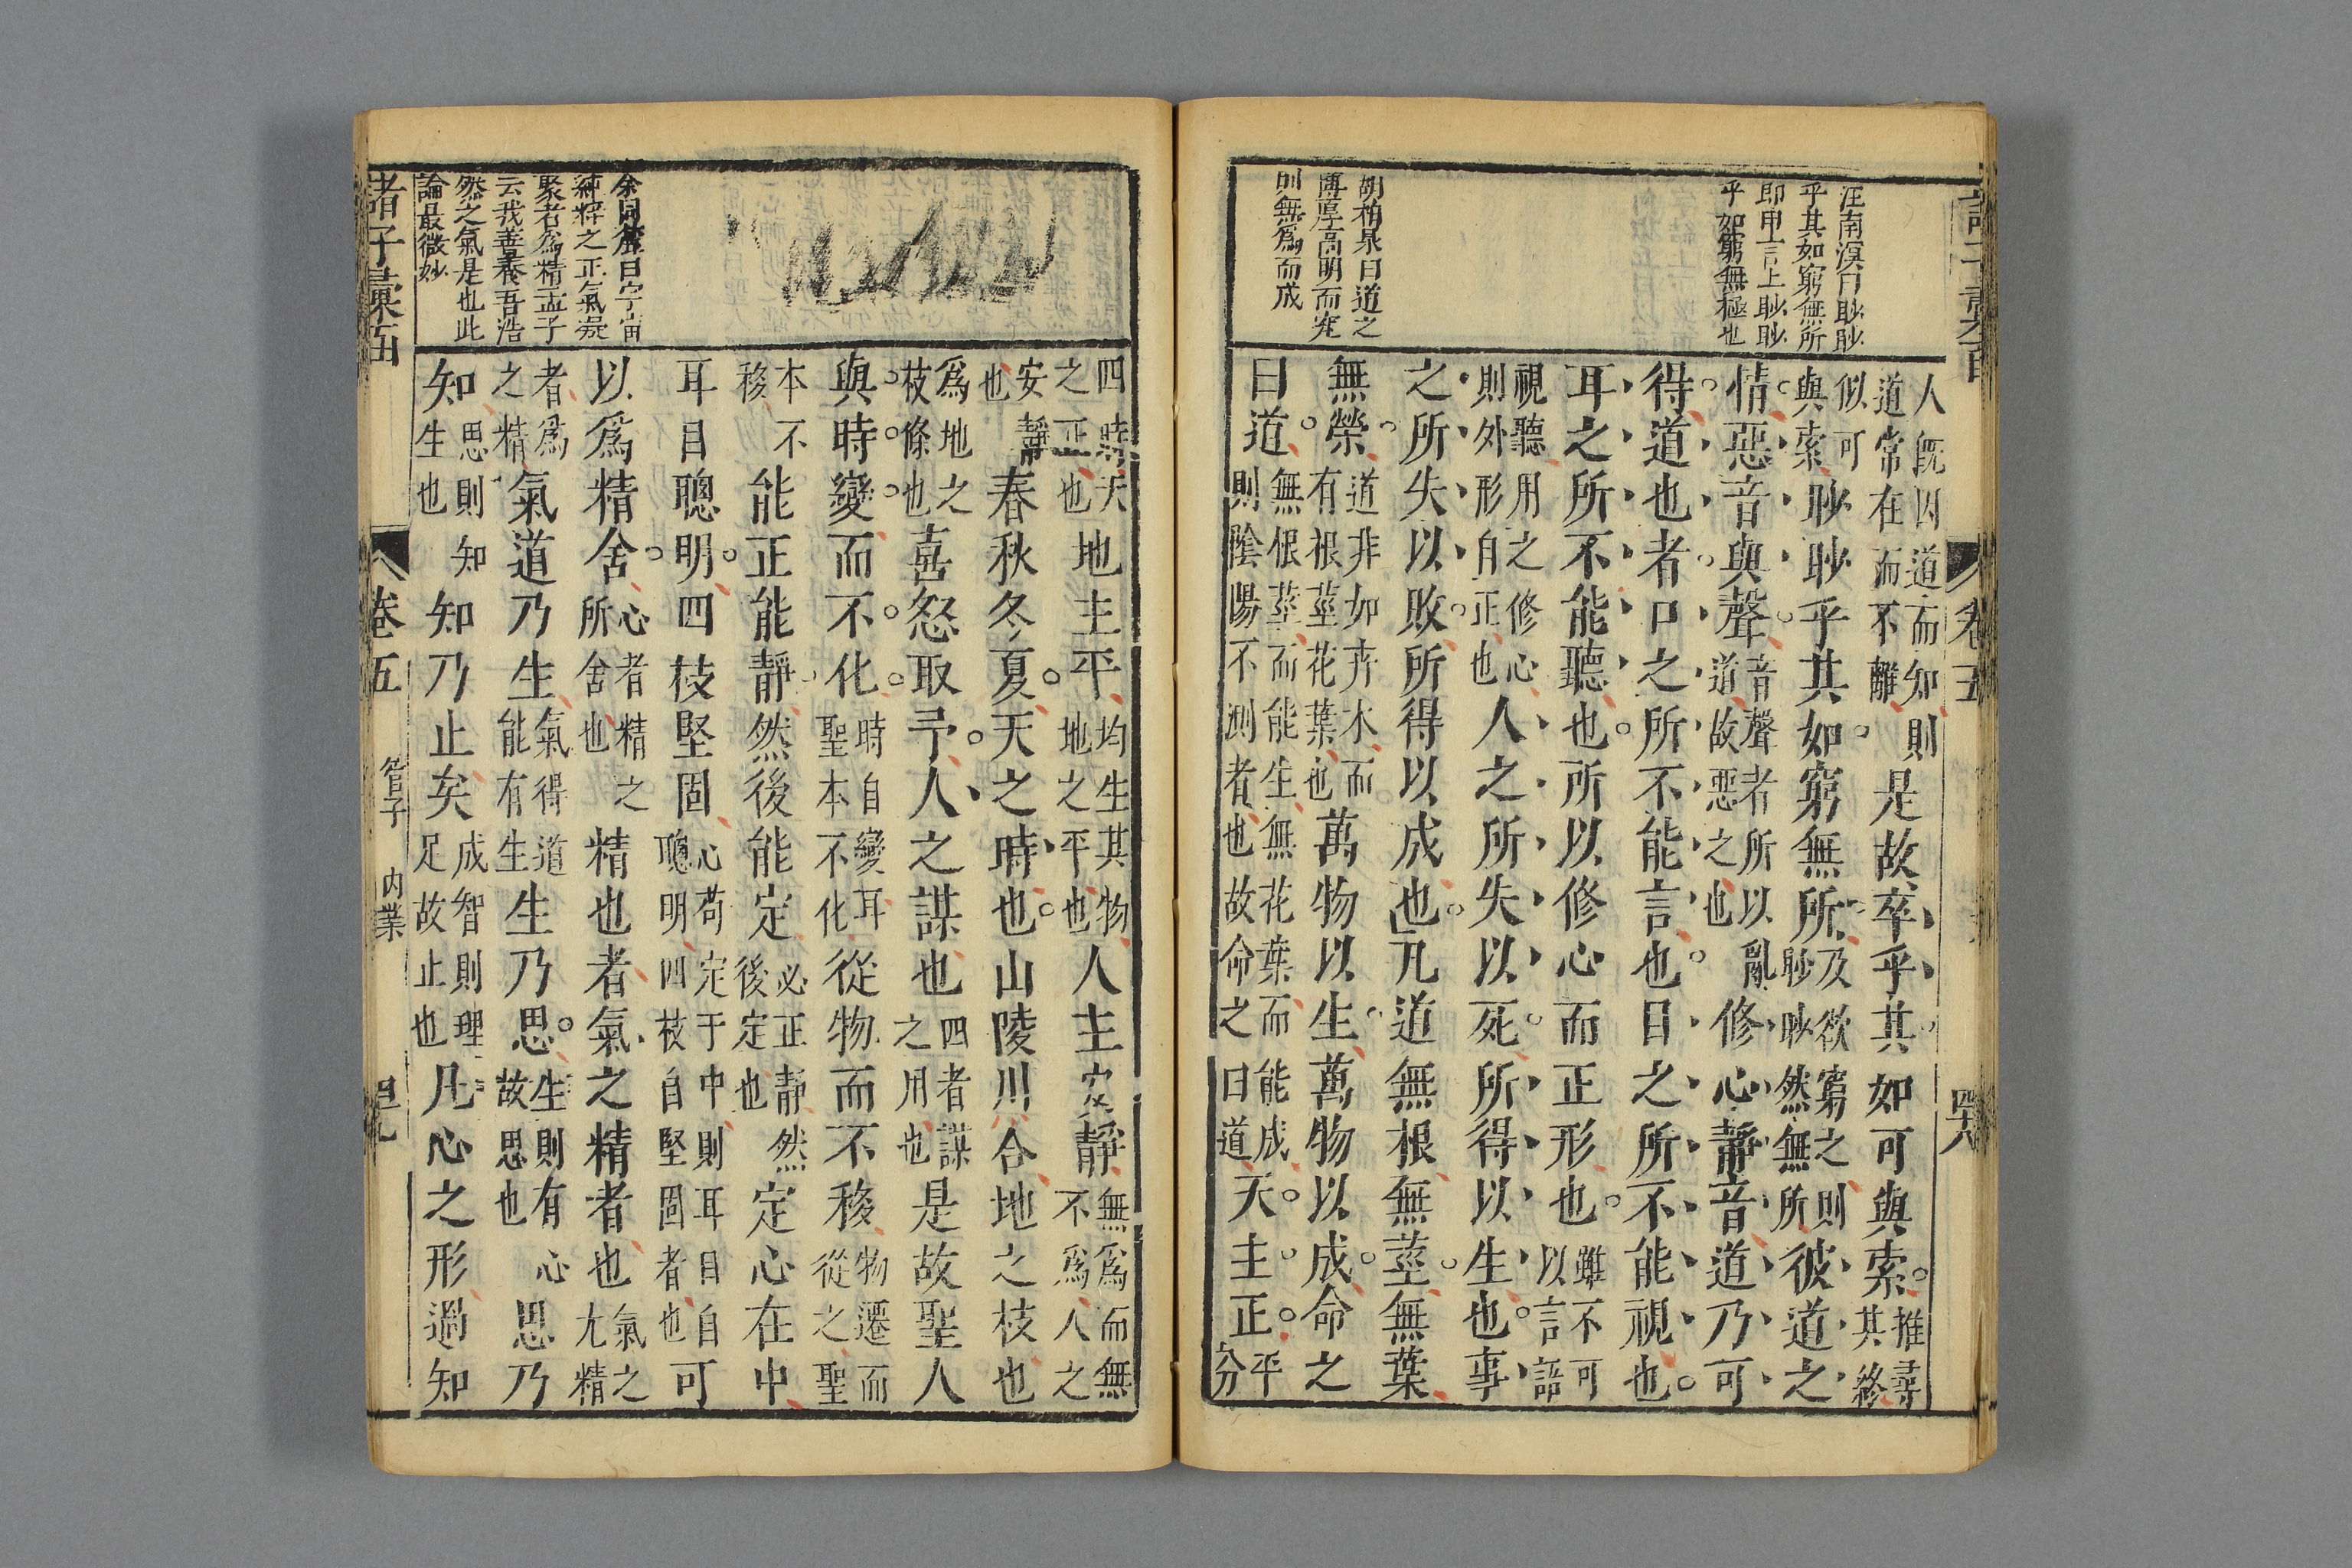 汪南溟曰眇眇
乎其如窮無所
即甲言上眇眇
乎如窮無極也
胡栢泉曰道之
博厚高明而究
則無為而成
人既因道而知則
道常在而不離
是故卒乎其如可與索
推尋其終
似可
與索
眇眇乎其如窮無所
及欲窮之則
眇眇然無所
彼道之
情惡音與聲
音聲者所以亂
道故惡之也
修心靜音道乃可
得道也者口之所不能言也目之所不能視也
耳之所不能聽也所以修心而正形也
雖不可
以言語
視聽用之修心
則外形自正也
人之所失以死所得以生也事
之所失以敗所得以成也凡道無根無莖無葉
無榮
道非如卉木而
有根莖花葉也
萬物以生萬物以成命之
曰道
無根莖而能生無花葉而能成
則陰陽不測者也故命之曰道
天主正
平分
諸子彙函
卷五
管子
內業
余同麓曰宇宙
純粹之正氣凝
聚者為精孟子
云我善養吾浩
然之氣是也此
論最微妙
四時天
之正也
地主平
均生其物
地之平也
人主安靜
無為而無
不為人之
安靜
也
春秋冬夏天之時也山陵川谷地之枝也
為地之
枝條也
喜怒取予人之謀也
四者謀
之用也
是故聖人
與時變而不化
時自變耳
聖本不化
從物而不移
物遷而
從之聖
本不
移
能正能靜然後能定
必正靜然
後定也
定心在中
耳目聰明四枝堅固
心苟定于中則耳目自
聰明四枝自堅固者也
可
以為精舍
心者精之
所舍也
精也者氣之精者也
氣之
尤精
者為
之精
氣道乃生
氣得道
能有生
生乃思
生則有心
故思也
思乃
知
思則知
生也
知乃止矣
成智則理
足故止也
凡心之形過知